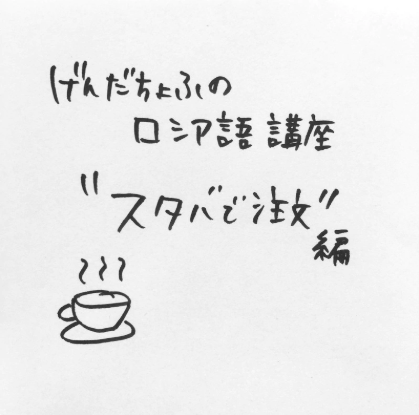 げんだちょふの
ロシア語講座
"スタバで注文"
編